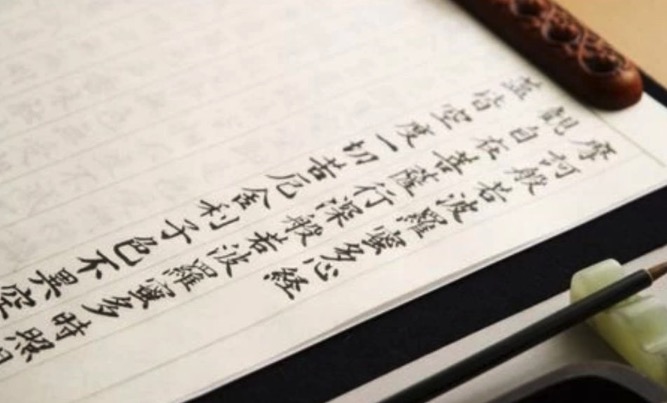 摩訶般若波羅蜜多心経
觀自在菩薩行深般若波羅蜜多時照
蘊皆空度一切苦厄舎利子色不異空